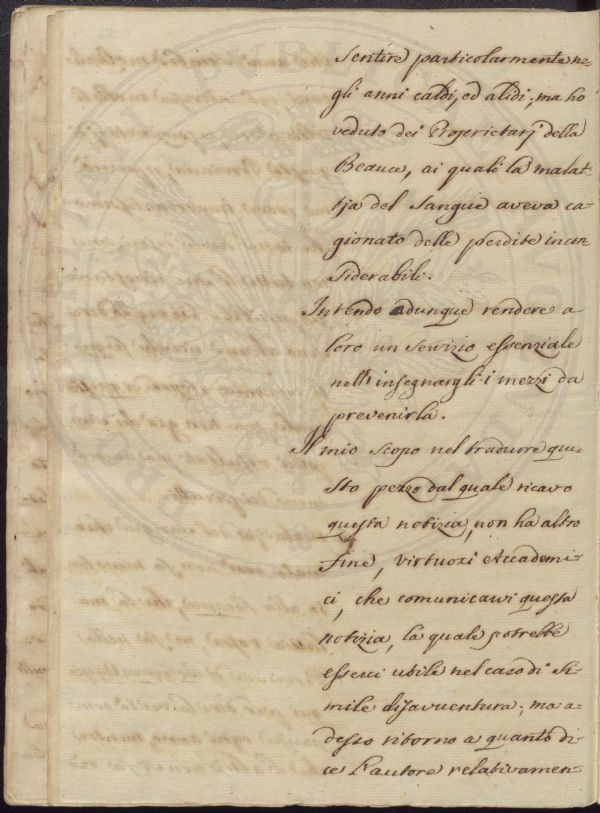 sentire particolarmente ne-
gli anni caldi, ed alidi; ma ho
veduto dei Proprietarj della
Beauce, ai quali la malat-
tja del Sangue aveva ca-
gionato delle perdite incon
siderabili.
Intendo adunque rendere a
loro un servizio essenziale
nell'insegnargli i mezzi da
prevenirla.
Il mio scopo nel tradurre que-
sto pezzo dal quale ricavo
questa notizia, non ha altro
fine, virtuosi Accademi-
ci, che comunicarvi questa
notizia, la quale potrebbe
esserci utile nel caso di si-
mile disavventura; ma a-
desso ritorno a quanto di-
ce l'autore relativamen-